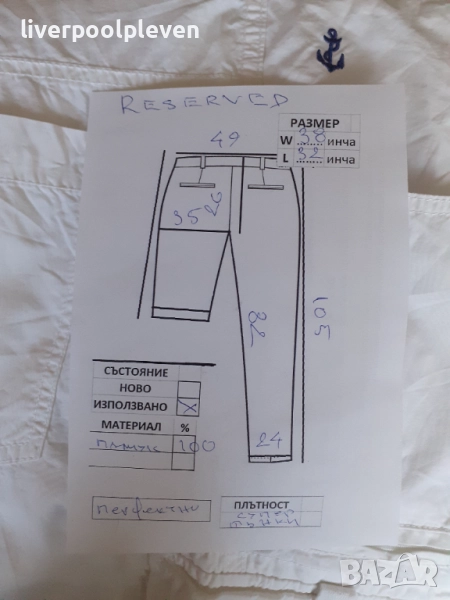 liverpoolpleven
RESERVED
РАЗМЕР
W 38 инча
L 32 инча
49
35
26
103
24
СЪСТОЯНИЕ
НОВО
ИЗПОЛЗВАНО X
МАТЕРИАЛ %
памук 100
перфектни
ПЛЪТНОСТ
супер
тънки
BAZAR